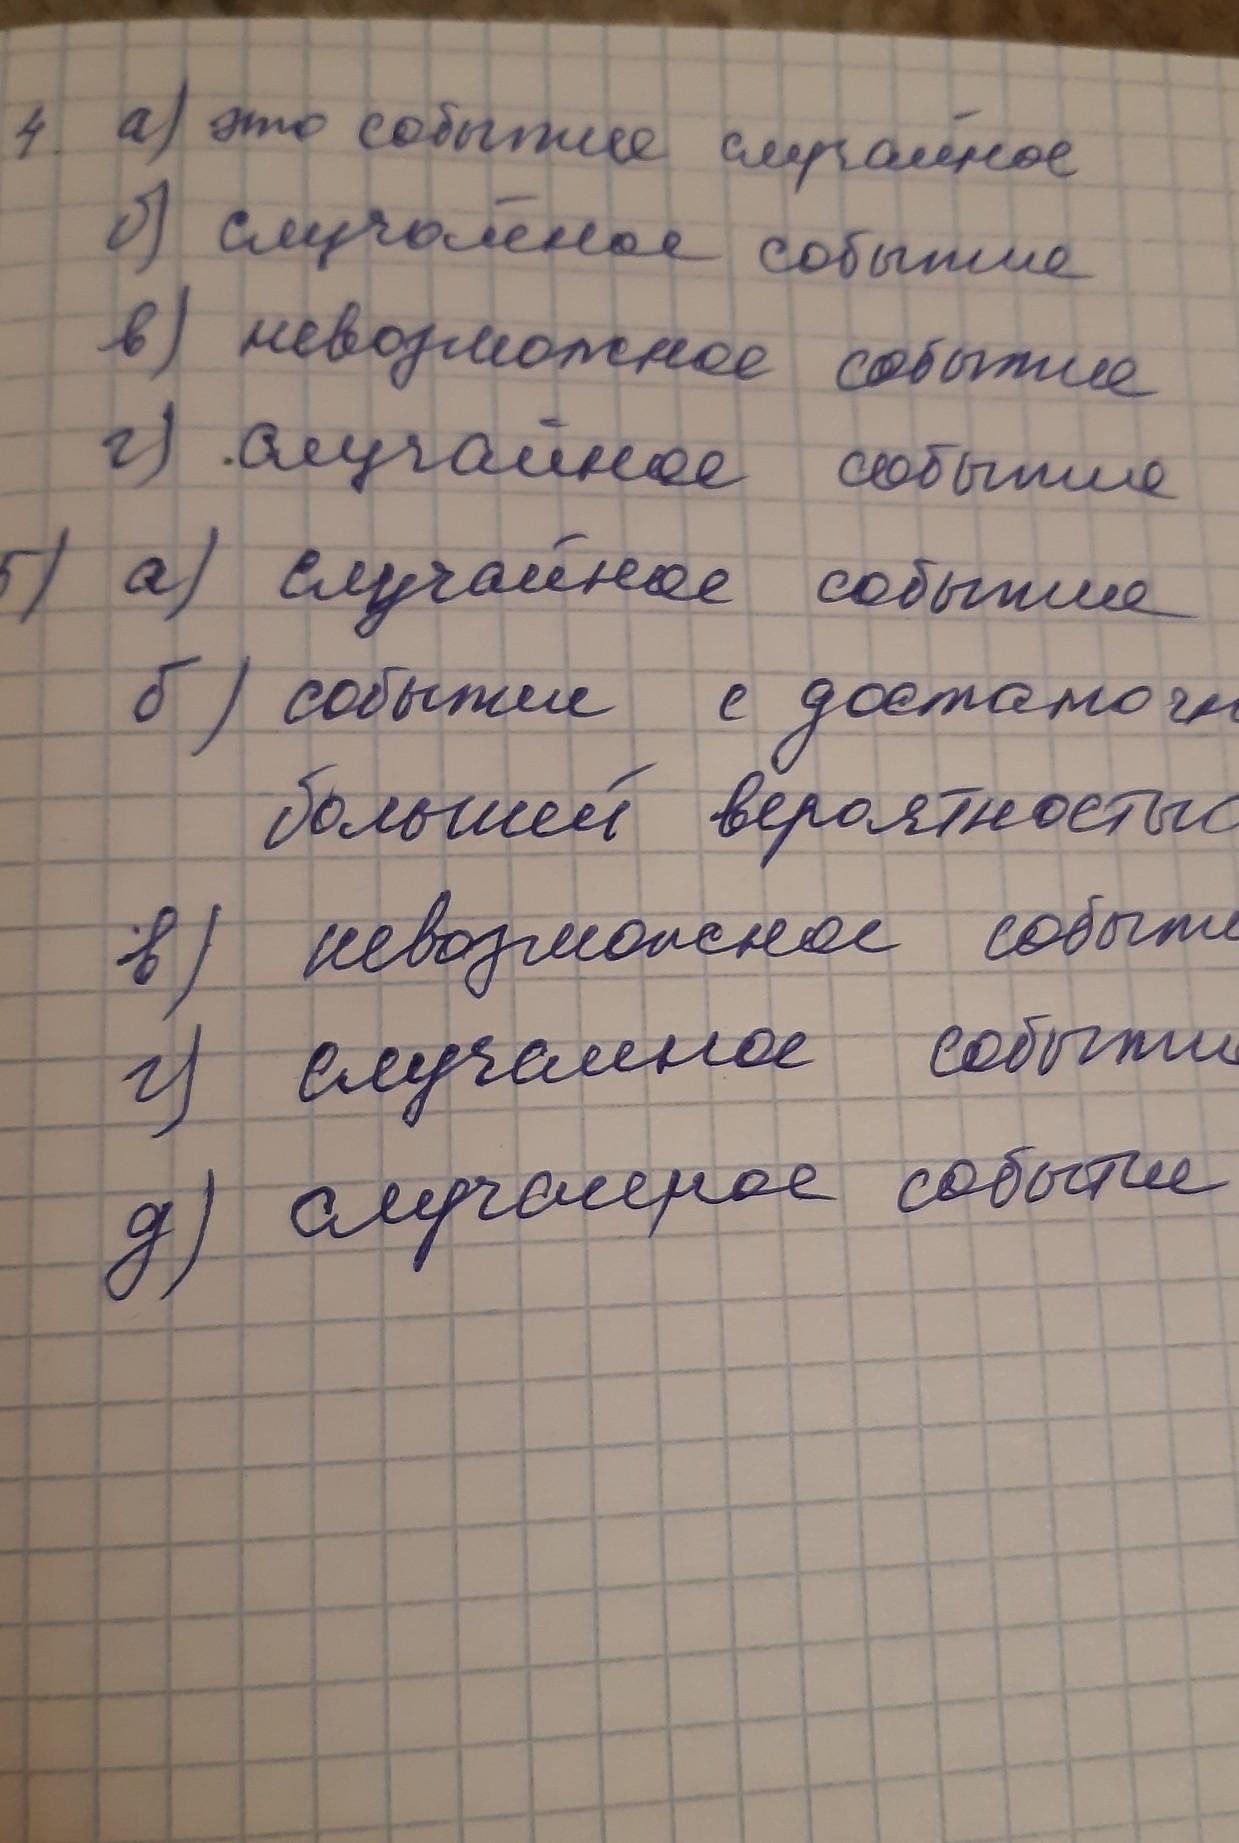 4. а) это событие случайное
б) случайное событие
в) невозможное событие
г) случайное событие
5) а) случайное событие
б) событие с достаточн
большей вероятностью
в) невозможное событи
г) случайное событие
д) случайное событие